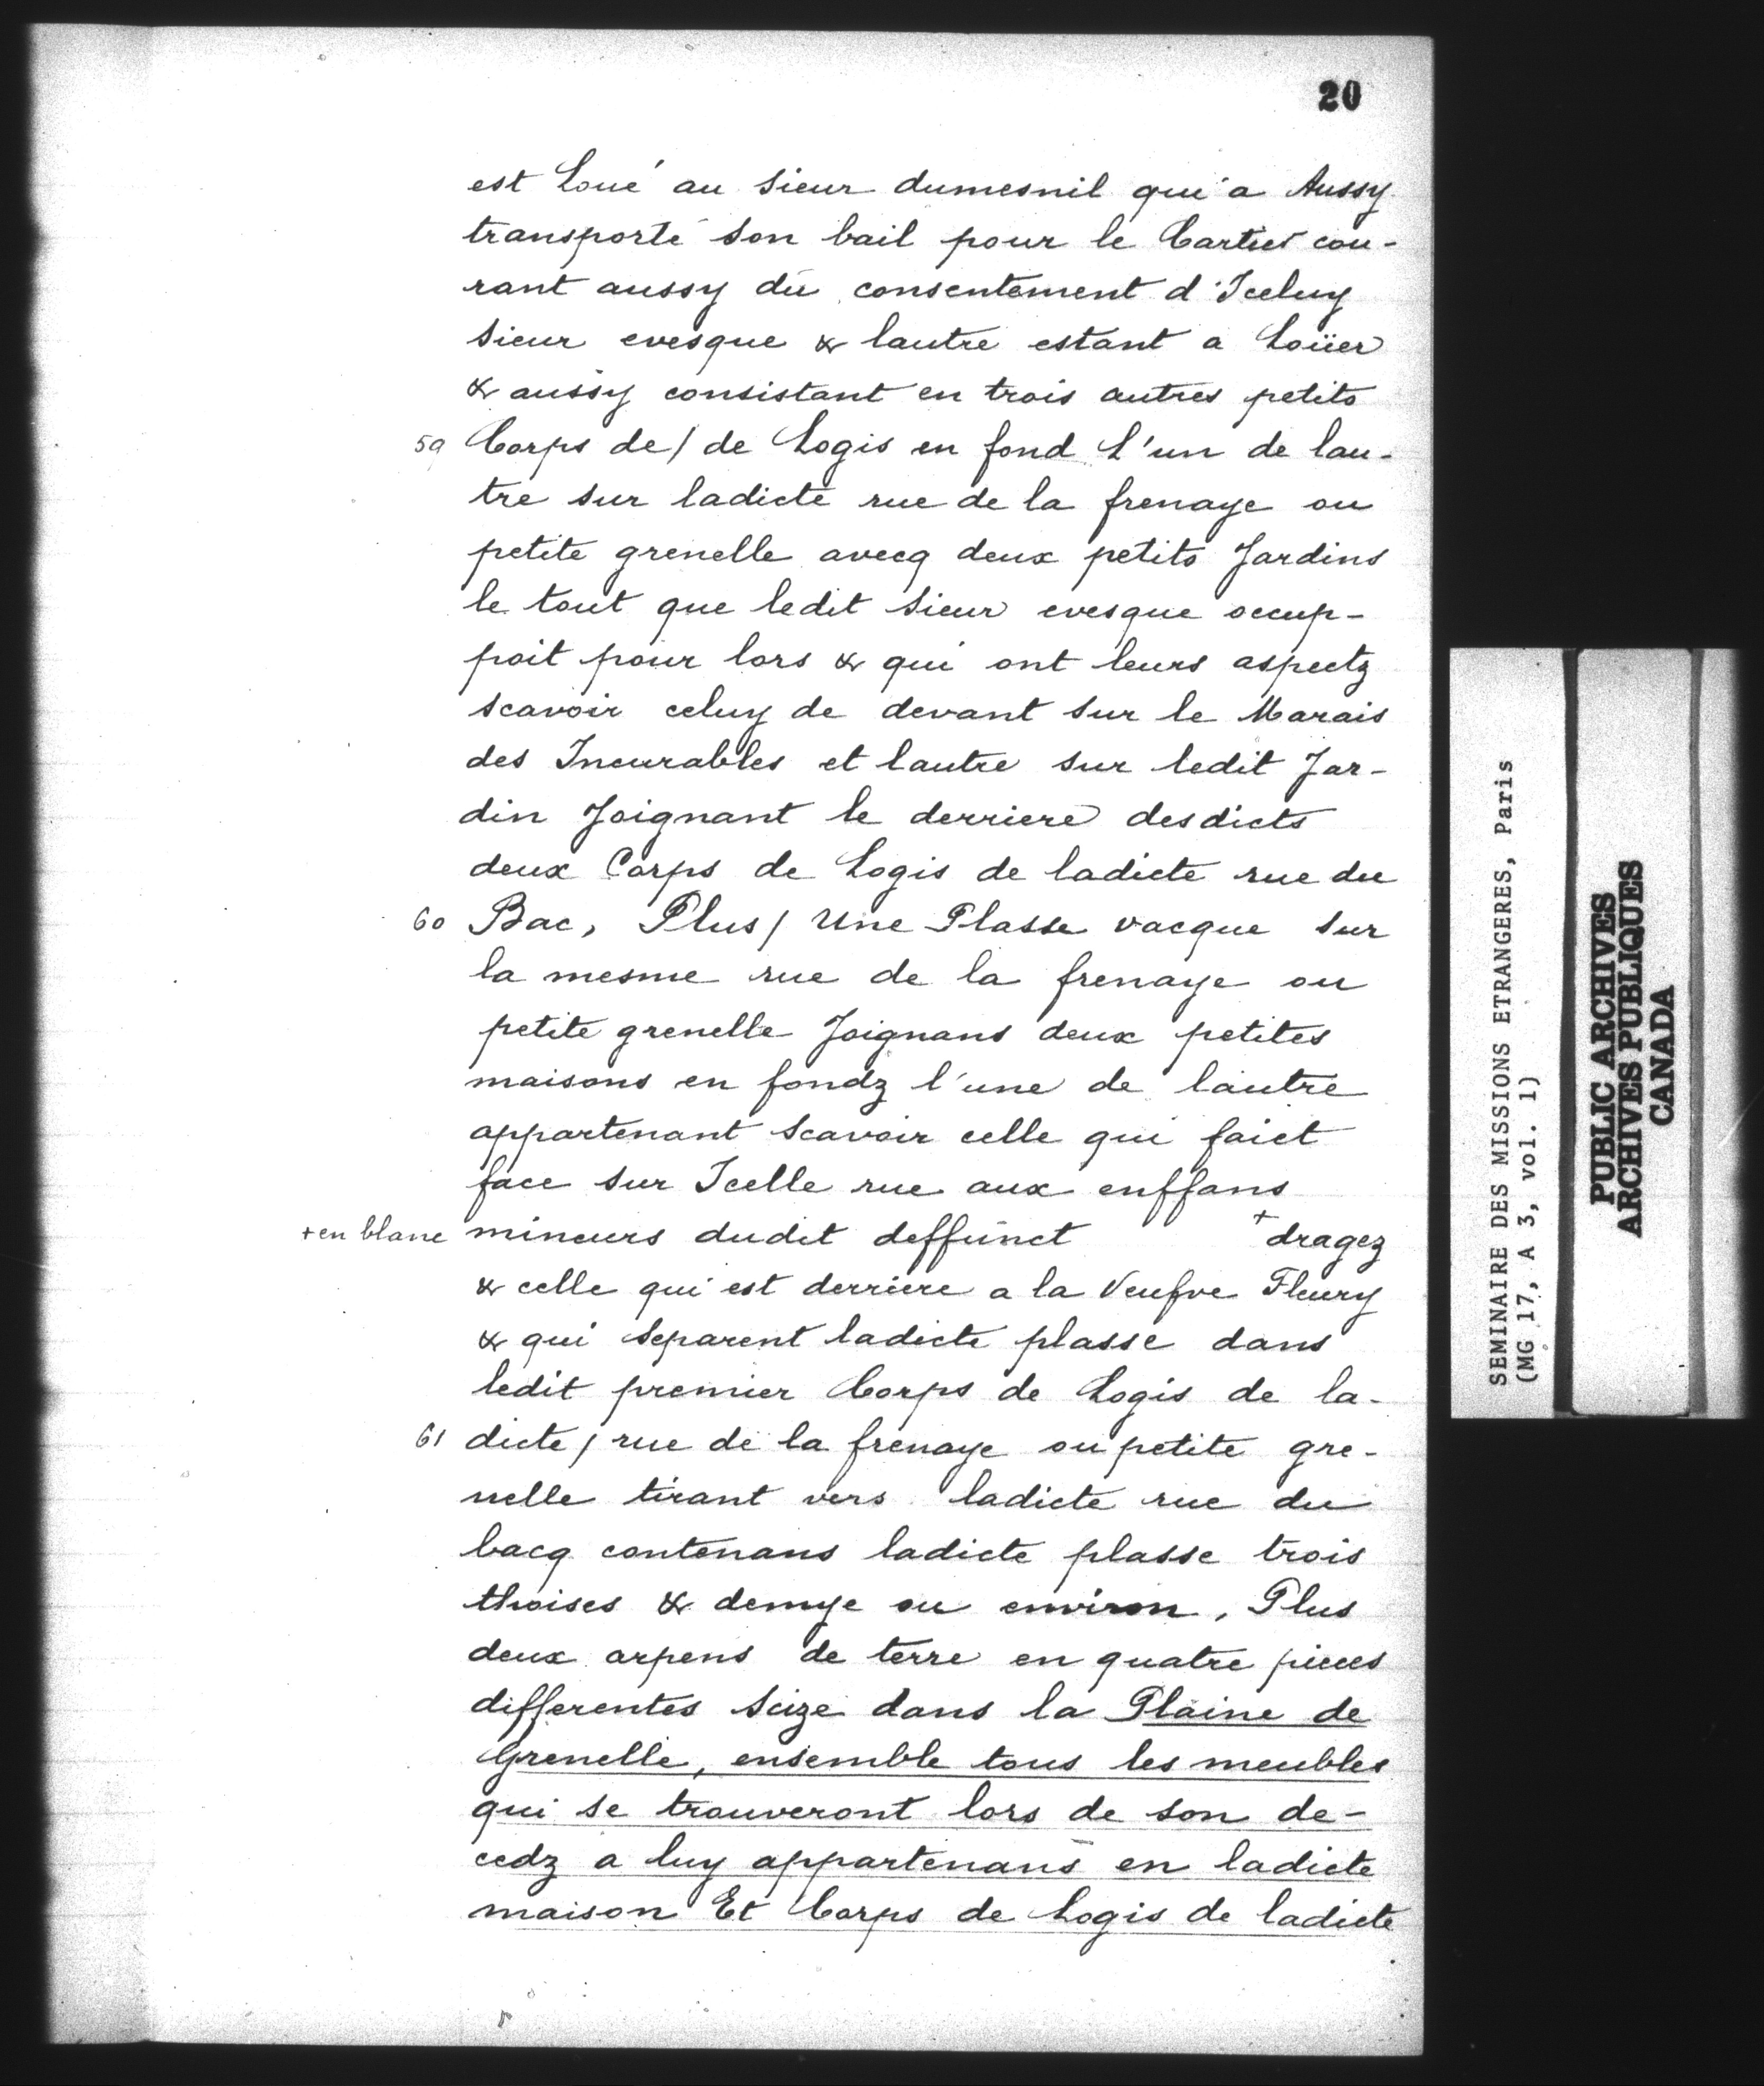 20
est Loué au Sieur dumesnil qui a Aussy
transporté son bail pour le Cartier cou-
rant aussy du consentement d'Iceluy
Sieur evesque & lautre estant a Loüer
& aussy consistant en trois autres petits
59 Corps de / de Logis en fond L'un de lau-
tre sur ladicte rue de la frenaye ou
petite grenelle avecq deux petits Jardins
le tout que ledit Sieur evesque occup-
poit pour lors & qui ont leurs aspectz
scavoir celuy de devant sur le Marais
des Incurables et lautre sur ledit Jar-
din Joignant le derriere desdicts
deux Corps de Logis de ladicte rue du
60 Bac, Plus / Une Plasse vacque sur
la mesme rue de la frenaye ou
petite grenelle Joignans deux petites
maisons en fondz l'une de lautre
appartenant Scavoir celle qui faict
face sur Icelle rue aux enffans
+ en blanc mineurs dudit deffunct + dragez
& celle qui est derriere a la Veufve Fleury
& qui Separent ladicte plasse dans
ledit premier Corps de Logis de la-
61 dicte / rue de la frenaye ou petite gre-
nelle tirant vers ladicte rue du
bacq contenans ladicte plasse trois
thoises & demye ou environ, Plus
deux arpens de terre en quatre pieces
differentes Seize dans la Plaine de
Grenelle, ensemble tous les meubles
qui se trouveront lors de son de-
cedz a luy appartenans en ladicte
maison Et Corps de Logis de ladicte
SEMINAIRE DES MISSIONS ETRANGERES, Paris
(MG 17, A 3, vol. 1)
PUBLIC ARCHIVES
ARCHIVES PUBLIQUES
CANADA